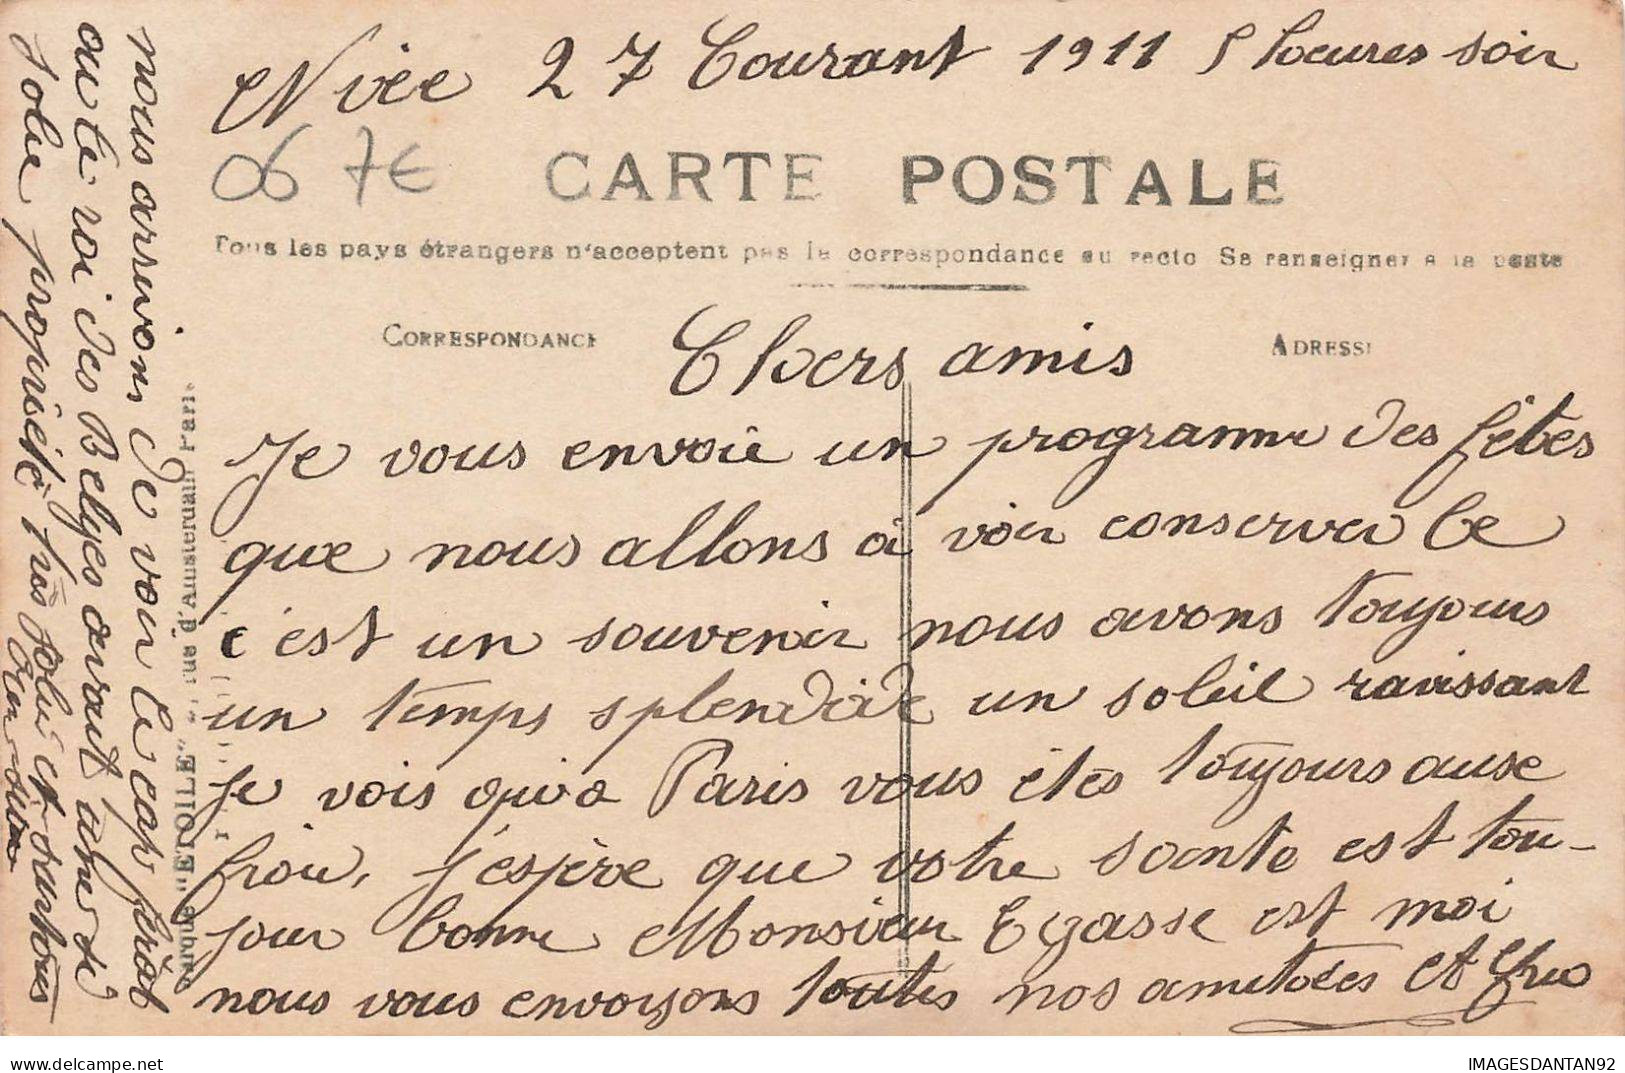 Nice 27 Courant 1911 5 heures soir
06 7€
CARTE POSTALE
Tous les pays étrangers n'acceptent pas la correspondance au recto Se renseigner a la poste
CORRESPONDANCE
ADRESSE
Chers amis
Je vous envoie un programme des fêtes
que nous allons à voir conserver le
c'est un souvenir nous avons toujours
un temps splendide un soleil ravissant
Je vois qui a Paris vous êtes toujours ause
froid, j'espère que votre santé est tou-
jour bonne Monsieur Egasse est moi
nous vous envoyons toutes nos amitoées et
nous arrivons de voir le cap ferrat
ou le roi des Belges avait
Jolie propriété très Joli et
rue d'Amsterdam Paris
"ETOILE"
IMAGESDANTAN92